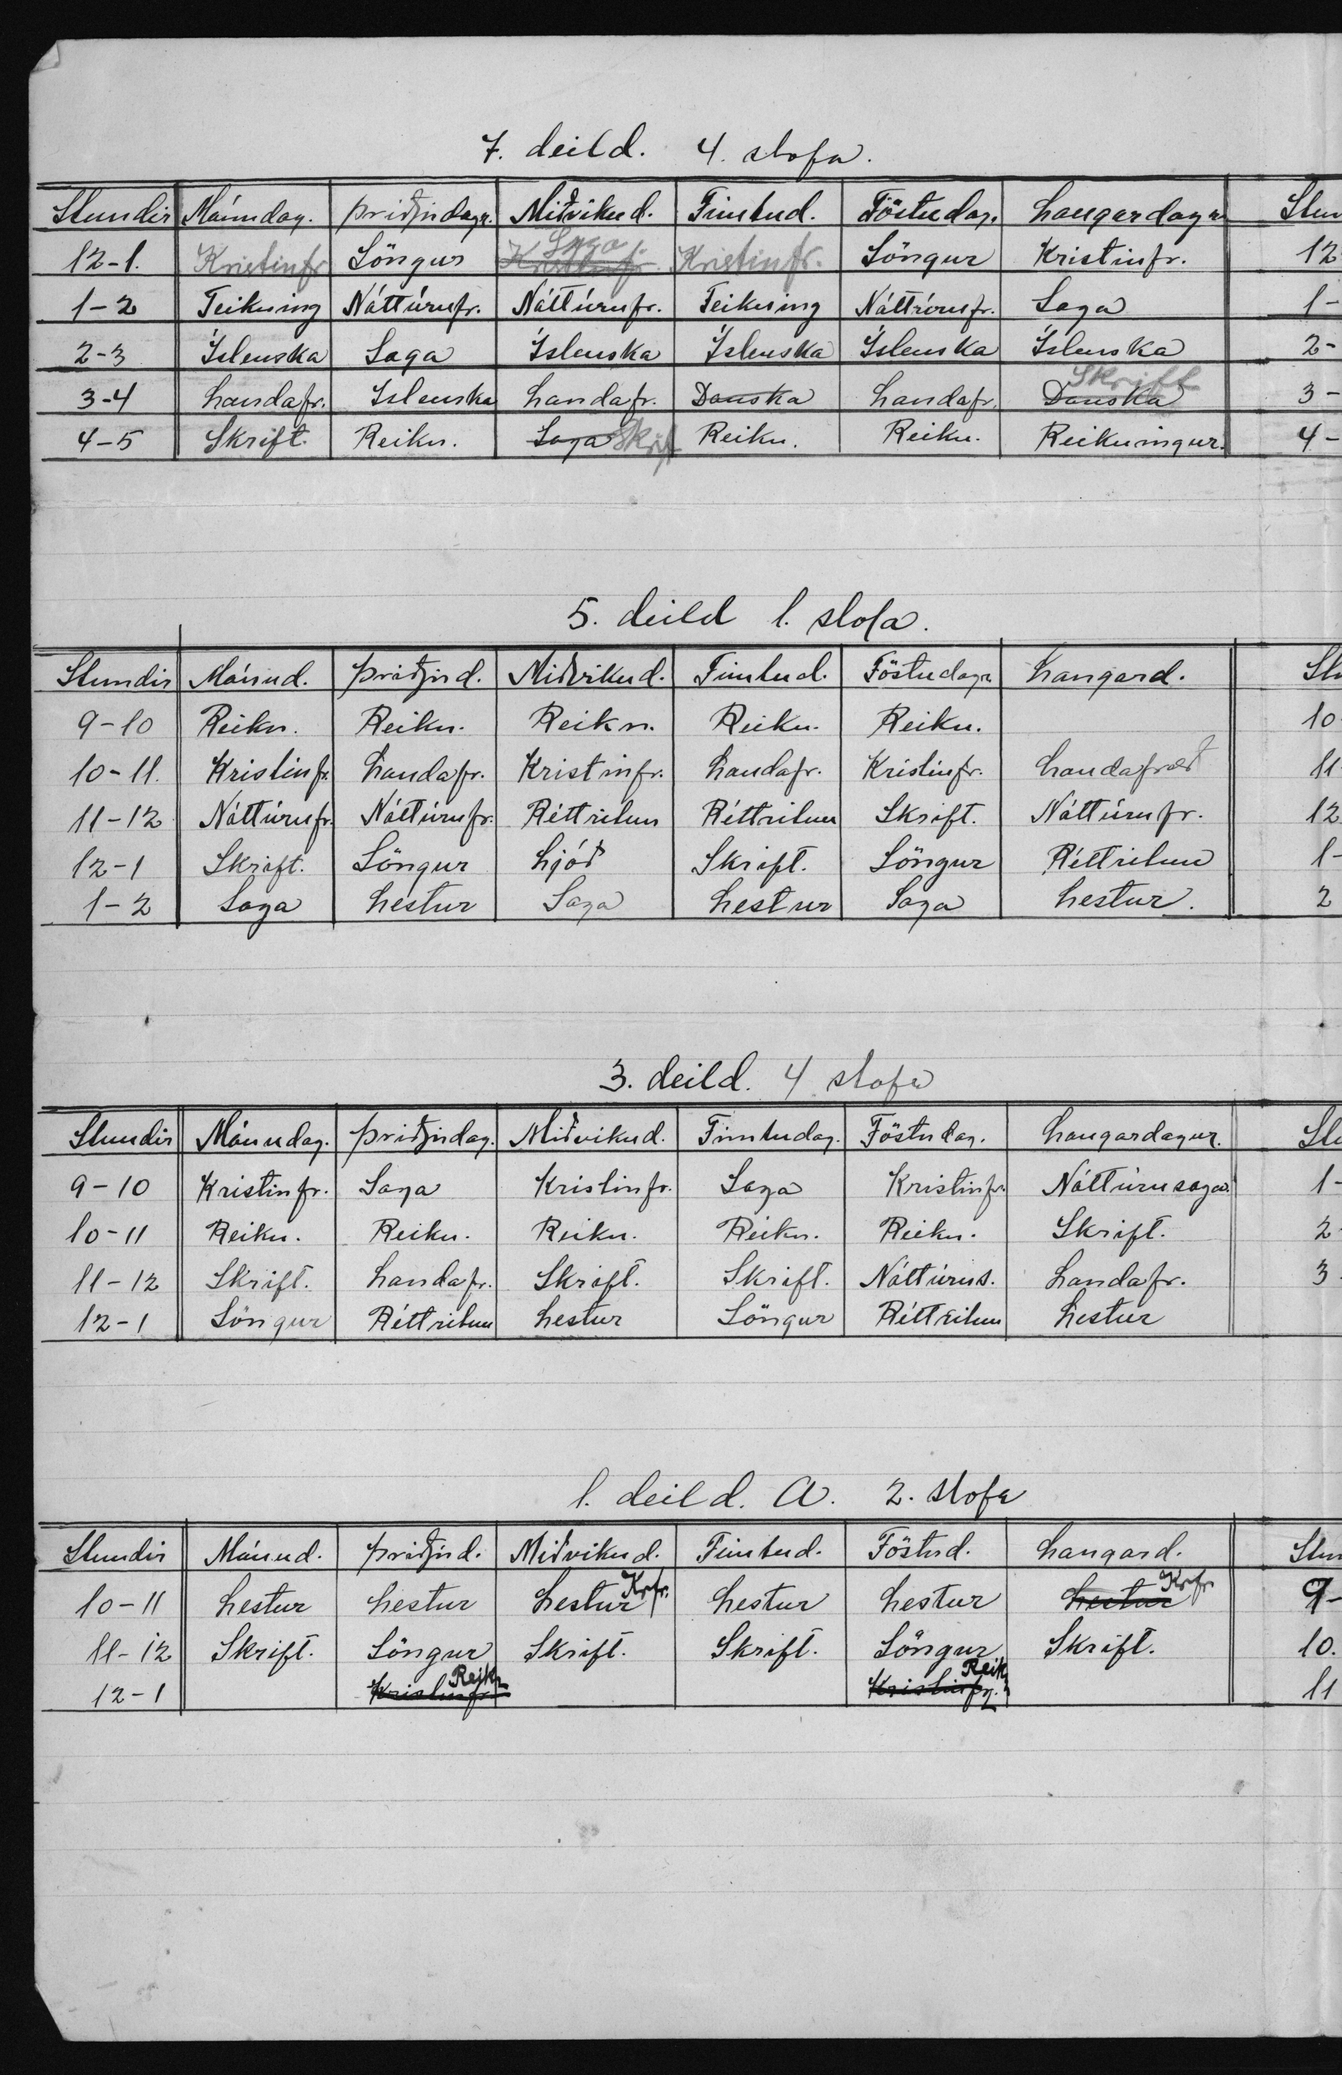 7. deild. 4. stofa.
Stundir Mánudag. Þriðjudagr. Miðvikud. Fimtud. Föstudag. Laugardagur Stun
12-1. Kristinfr. Söngur Kristinfr. Saga Kristinfr. Söngur Kristinfr. 12
1-2 Teikning Náttúrufr. Náttúrufr. Teikning Náttúrufr. Saga 1-
2-3 Íslenska Saga Íslenska Íslenska Íslenska Íslenska 2-
3-4 Landafr. Íslenska Landafr. Danska Landafr. Danska Skrift 3-
4-5 Skrift. Reikn. Saga Skrift Reikn. Reikn. Reikningur. 4-
5. deild 1. stofa.
Stundir Mánud. Þriðjud. Miðvikud. Fimtud. Föstudagr Laugard. Stu
9-10 Reikn. Reikn. Reikn. Reikn. Reikn. 10
10-11. Kristinfr. Landafr. Kristinfr. Landafr. Kristinfr. Landafræð 11
11-12 Náttúrufr. Náttúrufr. Réttritun Réttritun Skrift. Náttúrufr. 12
12-1 Skrift. Söngur Ljóð Skrift. Söngur Réttritun 1-
1-2 Saga Lestur Saga Lestur Saga Lestur. 2
3. deild. 4 stofa
Stundir Mánudag. Þriðjudag. Miðvikud. Fimtudag. Föstudag. Laugardagur. Stu
9-10 Kristinfr. Saga Kristinfr. Saga Kristinfr. Náttúrusaga. 1-
10-11 Reikn. Reikn. Reikn. Reikn. Reikn. Skrift. 2-
11-12 Skrift. Landafr. Skrift. Skrift. Náttúrus. Landafr. 3
12-1 Söngur Réttritun Lestur Söngur Réttritun Lestur
1. deild. A. 2. stofa
Stundir Mánud. Þriðjud. Miðvikud. Fimtud. Föstud. Laugard. Stun
10-11 Lestur Lestur Lestur Krfr. Lestur Lestur Lestur Krfr. 9-
11-12 Skrift. Söngur Skrift. Skrift. Söngur Skrift. 10.
12-1 Kristinfr. Reikn Kristinfr. Reikn 11